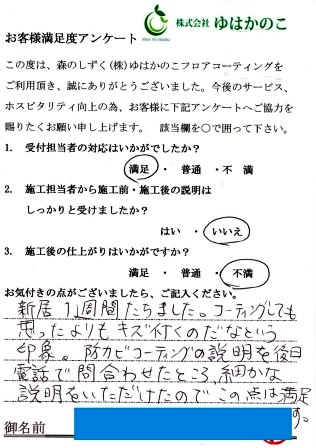 株式会社 ゆはかのこ
お客様満足度アンケート
この度は、森のしずく(株)ゆはかのこフロアコーティングを
ご利用頂き、誠にありがとうございました。今後のサービス、
ホスピタリティ向上の為、お客様に下記アンケートへご協力を
賜りたくお願い申し上げます。 該当欄を○で囲って下さい。
1. 受付担当者の対応はいかがでしたか?
満足 ・ 普通 ・ 不満
2. 施工担当者から施工前・施工後の説明は
しっかりと受けましたか?
はい ・ いいえ
3. 施工後の仕上がりはいかがですか?
満足 ・ 普通 ・ 不満
お気付きの点がございましたら、ご記入ください。
新居1週間たちました。コーティングしても
思ったよりもキズ付くのだなという
印象。防カビコーティングの説明を後日
電話で問合わせたところ、細かな
説明をいただけたので この点は満足
です。
御名前